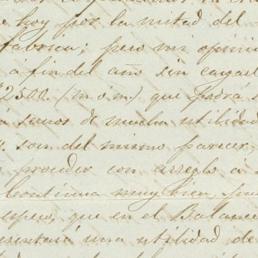 hoy por la mitad del
fabrica; pero mi opinion
a fin del año sin cargar
2500. (m.o.m.) que podrá
sernos de mucha utilidad
y son del mismo parecer
proceder con arreglo á
continua muy bien, pue
espero, que en el Balance
una utilidad de